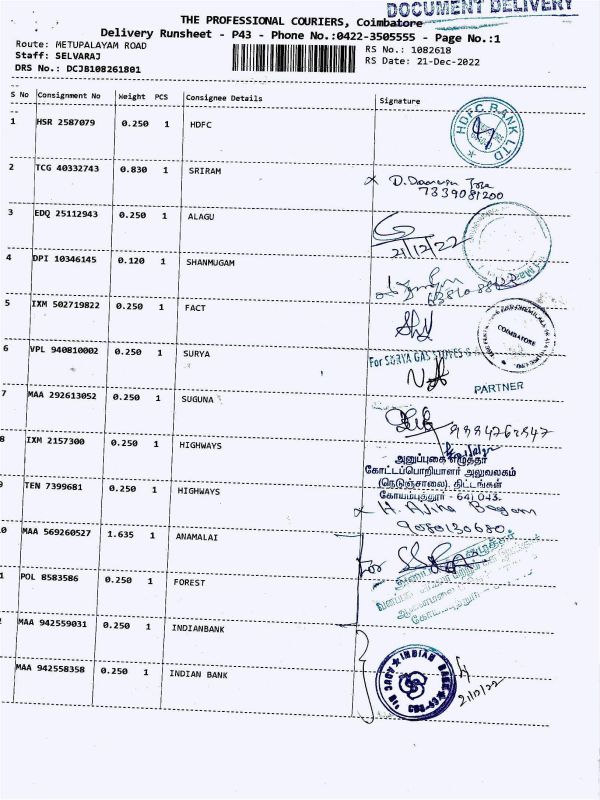 DOCUMENT DELIVERY
THE PROFESSIONAL COURIERS, Coimbatore
Delivery Runsheet - P43 - Phone No.:0422-3505555 - Page No.:1
Route: METUPALAYAM ROAD
RS No.: 1082618
Staff: SELVARAJ
RS Date: 21-Dec-2022
DRS No.: DCJB108261801
S No Consignment No Weight PCS Consignee Details Signature
1 HSR 2587079 0.250 1 HDFC
HDFC BANK LTD
2 TCG 40332743 0.830 1 SRIRAM
7339081200
3 EDQ 25112943 0.250 1 ALAGU
21/12/22
4 DPI 10346145 0.120 1 SHANMUGAM
5 IXM 502719822 0.250 1 FACT
COIMBATORE
6 VPL 940810002 0.250 1 SURYA
For SURYA GAS
PARTNER
7 MAA 292613052 0.250 1 SUGUNA
8 IXM 2157300 0.250 1 HIGHWAYS
அனுப்புகை எழுத்தர்
கோட்டப்பொறியாளர் அலுவலகம்
(நெடுஞ்சாலை). திட்டங்கள்
கோயம்புத்தூர் - 641 043.
9 TEN 7399681 0.250 1 HIGHWAYS
9080130680
0 MAA 569260527 1.635 1 ANAMALAI
For
1 POL 8583586 0.250 1 FOREST
2 MAA 942559031 0.250 1 INDIANBANK
MAA 942558358 0.250 1 INDIAN BANK
INDIAN BANK